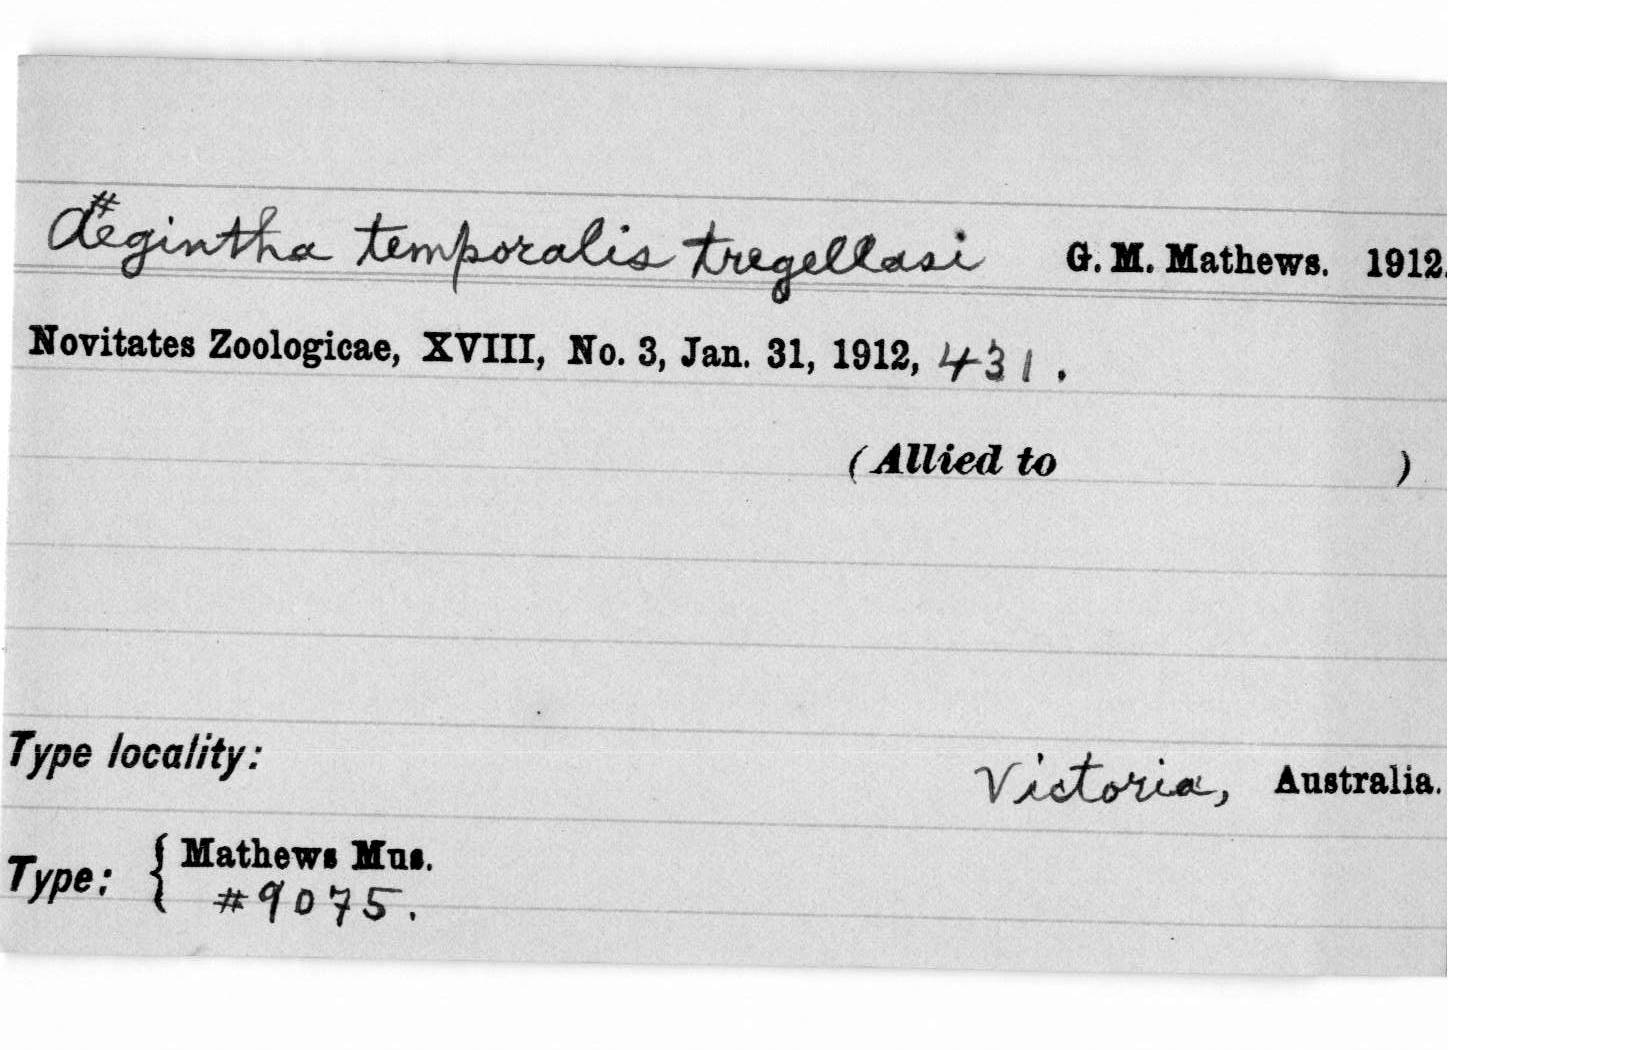 Aegintha temporalis tregellasi G. M. Mathews. 1912.
Novitates Zoologicae, XVIII, No. 3, Jan. 31, 1912, 431.
(Allied to )
Type locality: Victoria, Australia.
Type: { Mathews Mus.
#9075.